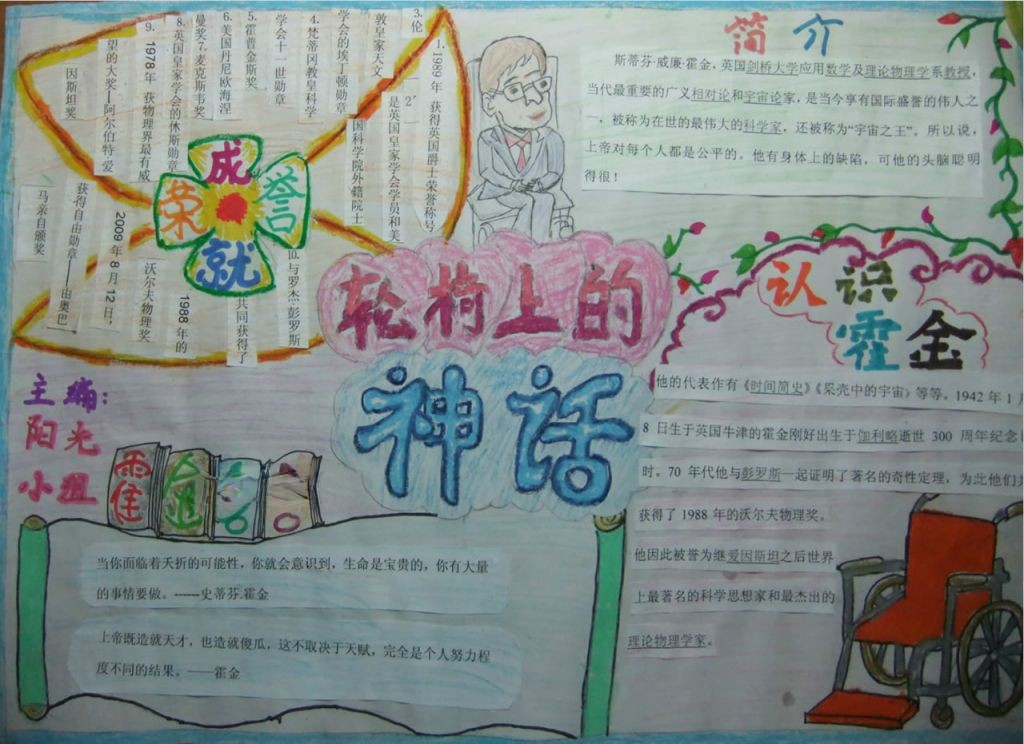 简介
斯蒂芬·威廉·霍金，英国剑桥大学应用数学及理论物理学系教授，
当代最重要的广义相对论和宇宙论家，是当今享有国际盛誉的伟人之
一，被称为在世的最伟大的科学家，还被称为“宇宙之王”。所以说，
上帝对每个人都是公平的。他有身体上的缺陷，可他的头脑聪明
得很！
成就
荣誉
1. 1989 年 获得英国爵士荣誉称号
2 是英国皇家学会学员和美
国科学院外籍院士
3. 伦
敦皇家天文
学会的埃丁顿勋章
4. 梵蒂冈教皇科学
学会十一世勋章
5. 霍普金斯奖
6. 美国丹尼欧海涅
曼奖 7. 麦克斯韦奖
8. 英国皇家学会的休斯勋章
9. 1978 年 获物理界最有威
望的大奖——阿尔伯特·爱
因斯坦奖
10. 与罗杰·彭罗斯
共同获得了
1988 年的
沃尔夫物理奖
2009 年 8 月 12 日，
获得自由勋章——由奥巴
马亲自颁奖
轮椅上的
神话
认识
霍金
他的代表作有《时间简史》《果壳中的宇宙》等等。1942 年 1 月
8 日生于英国牛津的霍金刚好出生于伽利略逝世 300 周年纪念
时。70 年代他与彭罗斯一起证明了著名的奇性定理，为此他们
获得了 1988 年的沃尔夫物理奖。
他因此被誉为继爱因斯坦之后世界
上最著名的科学思想家和最杰出的
理论物理学家。
主编：
阳光
小组
霍金
当你面临着夭折的可能性，你就会意识到，生命是宝贵的，你有大量
的事情要做。------史蒂芬.霍金
上帝既造就天才，也造就傻瓜，这不取决于天赋，完全是个人努力程
度不同的结果。——霍金